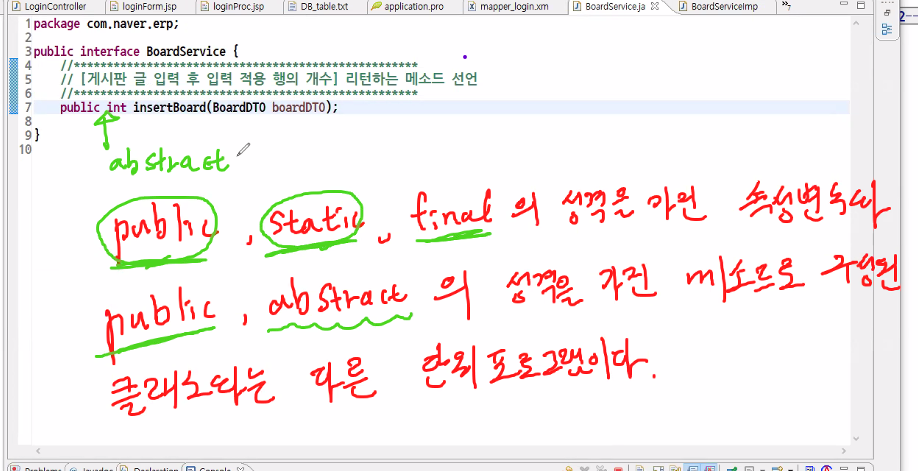 LoginController loginForm.jsp loginProc.jsp DB_table.txt application.pro mapper_login.xm BoardService.ja BoardServiceImp »7
1 package com.naver.erp;
2
3 public interface BoardService {
4 //****************************************************
5 // [게시판 글 입력 후 입력 적용 행의 개수] 리턴하는 메소드 선언
6 //****************************************************
7 public int insertBoard(BoardDTO boardDTO);
8
9 }
10
abstract
public, static, final 의 성격을 가진 속성변수와
public, abstract 의 성격을 가진 메소드로 구성된
클래스와는 다른 단위 프로그램이다.
Problems Javadoc Declaration Console